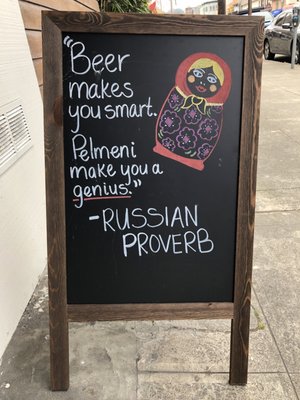 "Beer
makes
you smart.
Pelmeni
make you a
genius."
- RUSSIAN
PROVERB